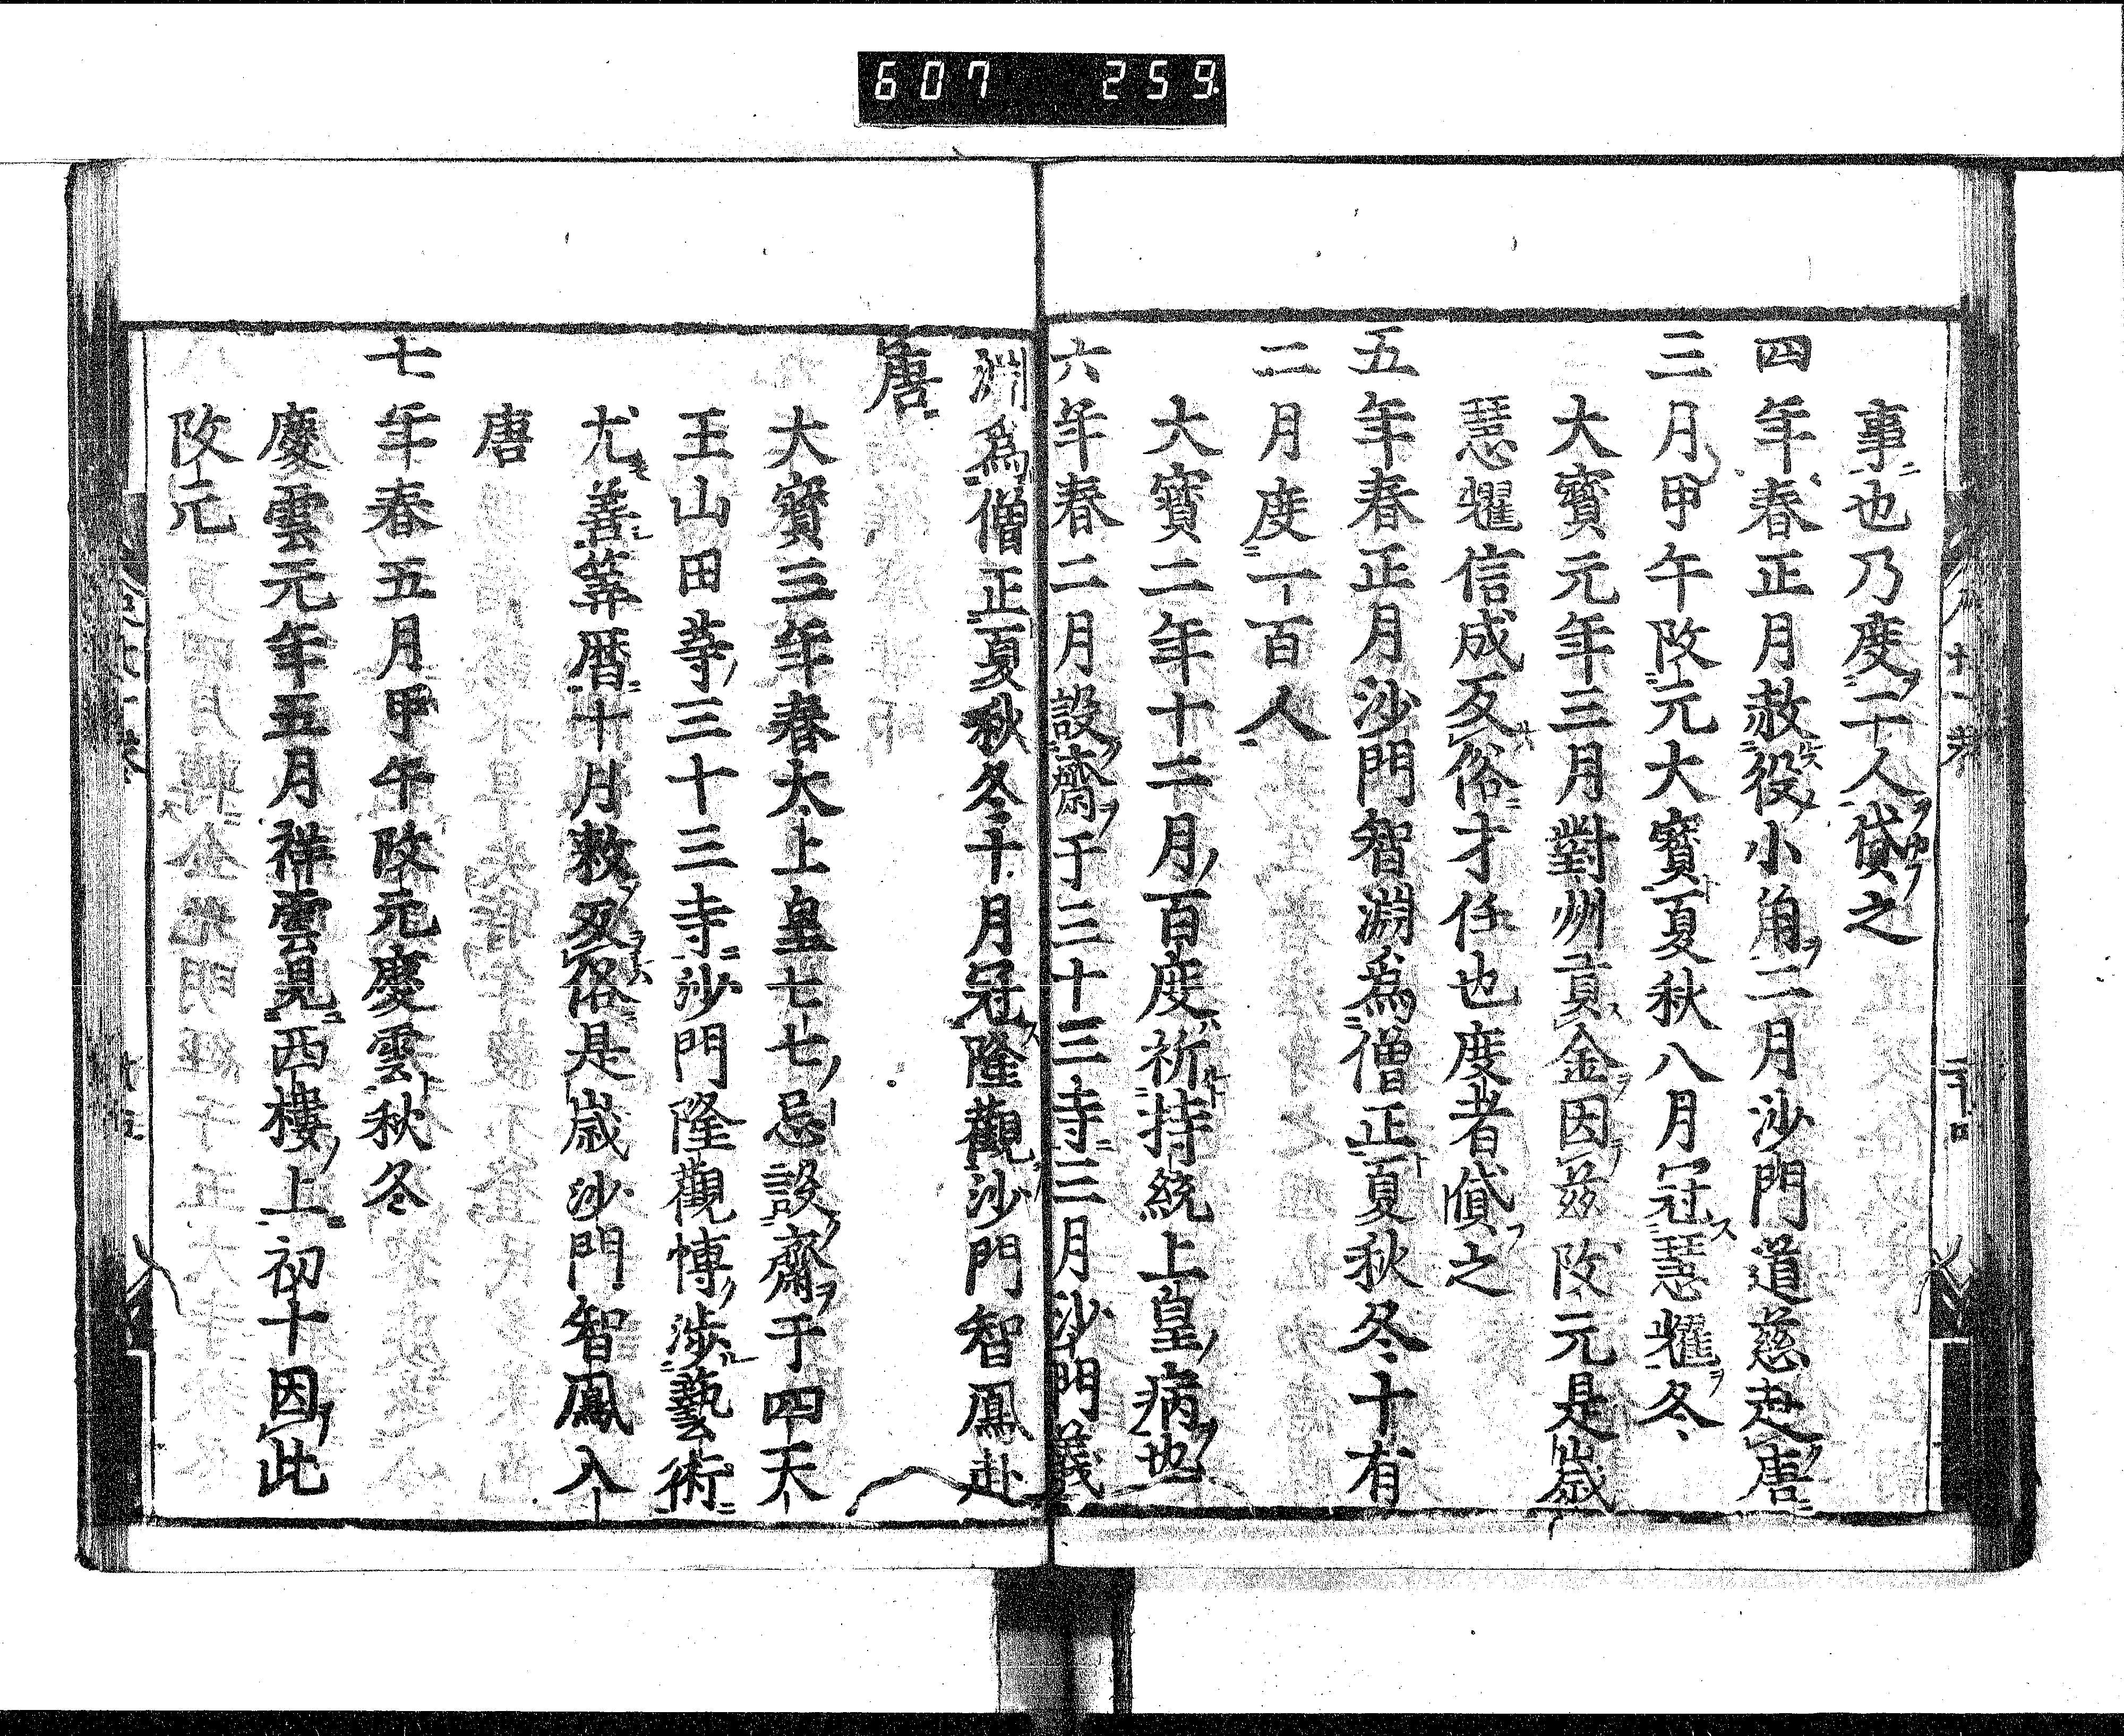 607 259
事也乃度二十人貸之
四年春正月赦役小角二月沙門道慈赴唐
三月甲午改元大寶夏秋八月冠慧耀冬
大寶元年三月對州貢金因茲改元是歲
慧耀信成反俗才任也度者償之
五年春正月沙門智淵爲僧正夏秋冬十有
二月度一百人
大寶二年十二月百度祈持統上皇病也
六年春二月設齋于三十三寺三月沙門義
淵爲僧正夏秋冬十月冠隆觀沙門智鳳赴
唐
大寶三年春太上皇七七忌設齋于四天
王山田等三十三寺沙門隆觀博涉藝術
尤善筭曆十月敕反俗是歲沙門智鳳入
唐
七年春五月甲午改元慶雲秋冬
慶雲元年五月祥雲見西樓上初十因此
改元